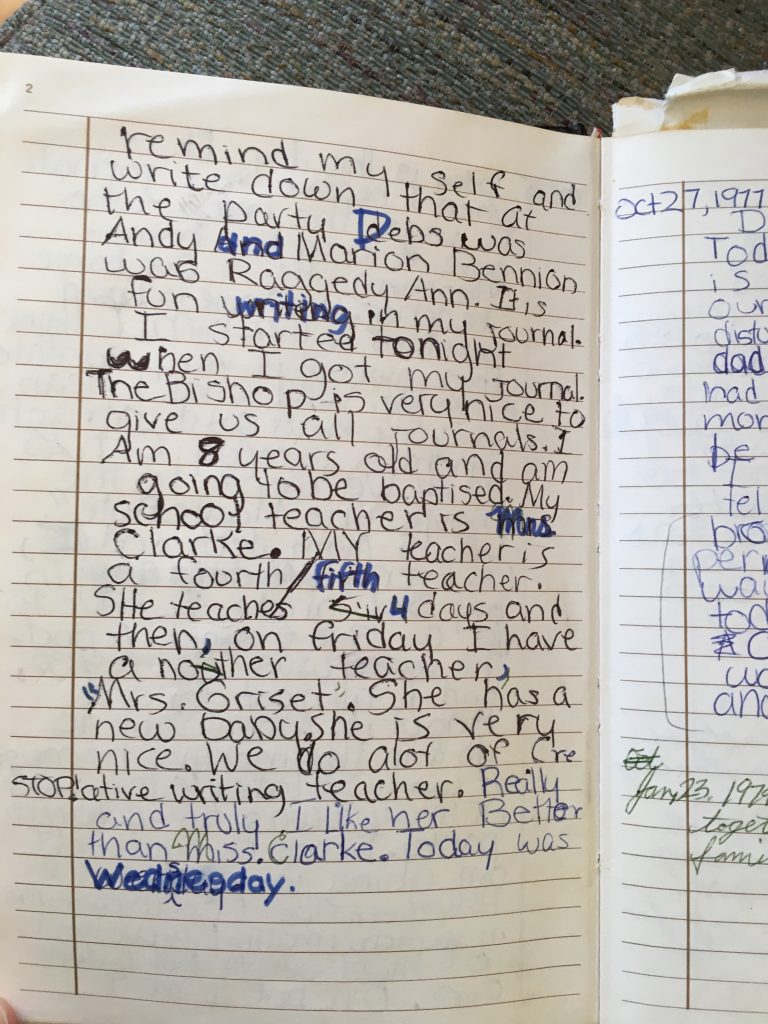 2
remind my self and
write down that at
the party Debs was
Andy and Marion Bennion
was Raggedy Ann. It is
fun writing in my journal.
I started tonight
when I got my journal.
The Bishop is very nice to
give us all journals. I
Am 8 years old and am
going to be baptised. My
school teacher is
Clarke. MY teacher is
a fourth / fifth teacher.
SHe teaches 4 days and
then, on friday I have
a nother teacher,
"Mrs. Griset". She has a
new baby. she is very
nice. We do alot of Cre
STOP! ative writing teacher. Really
and truly I like her Better
than Miss. Clarke. Today was
Wednesday.
Oct 27, 1977
D
Tod
is
our
distu
dad
had
mor
be
tel
bro
perr
wa
tod
wo
and
Jan, 23, 1979
toget
fami